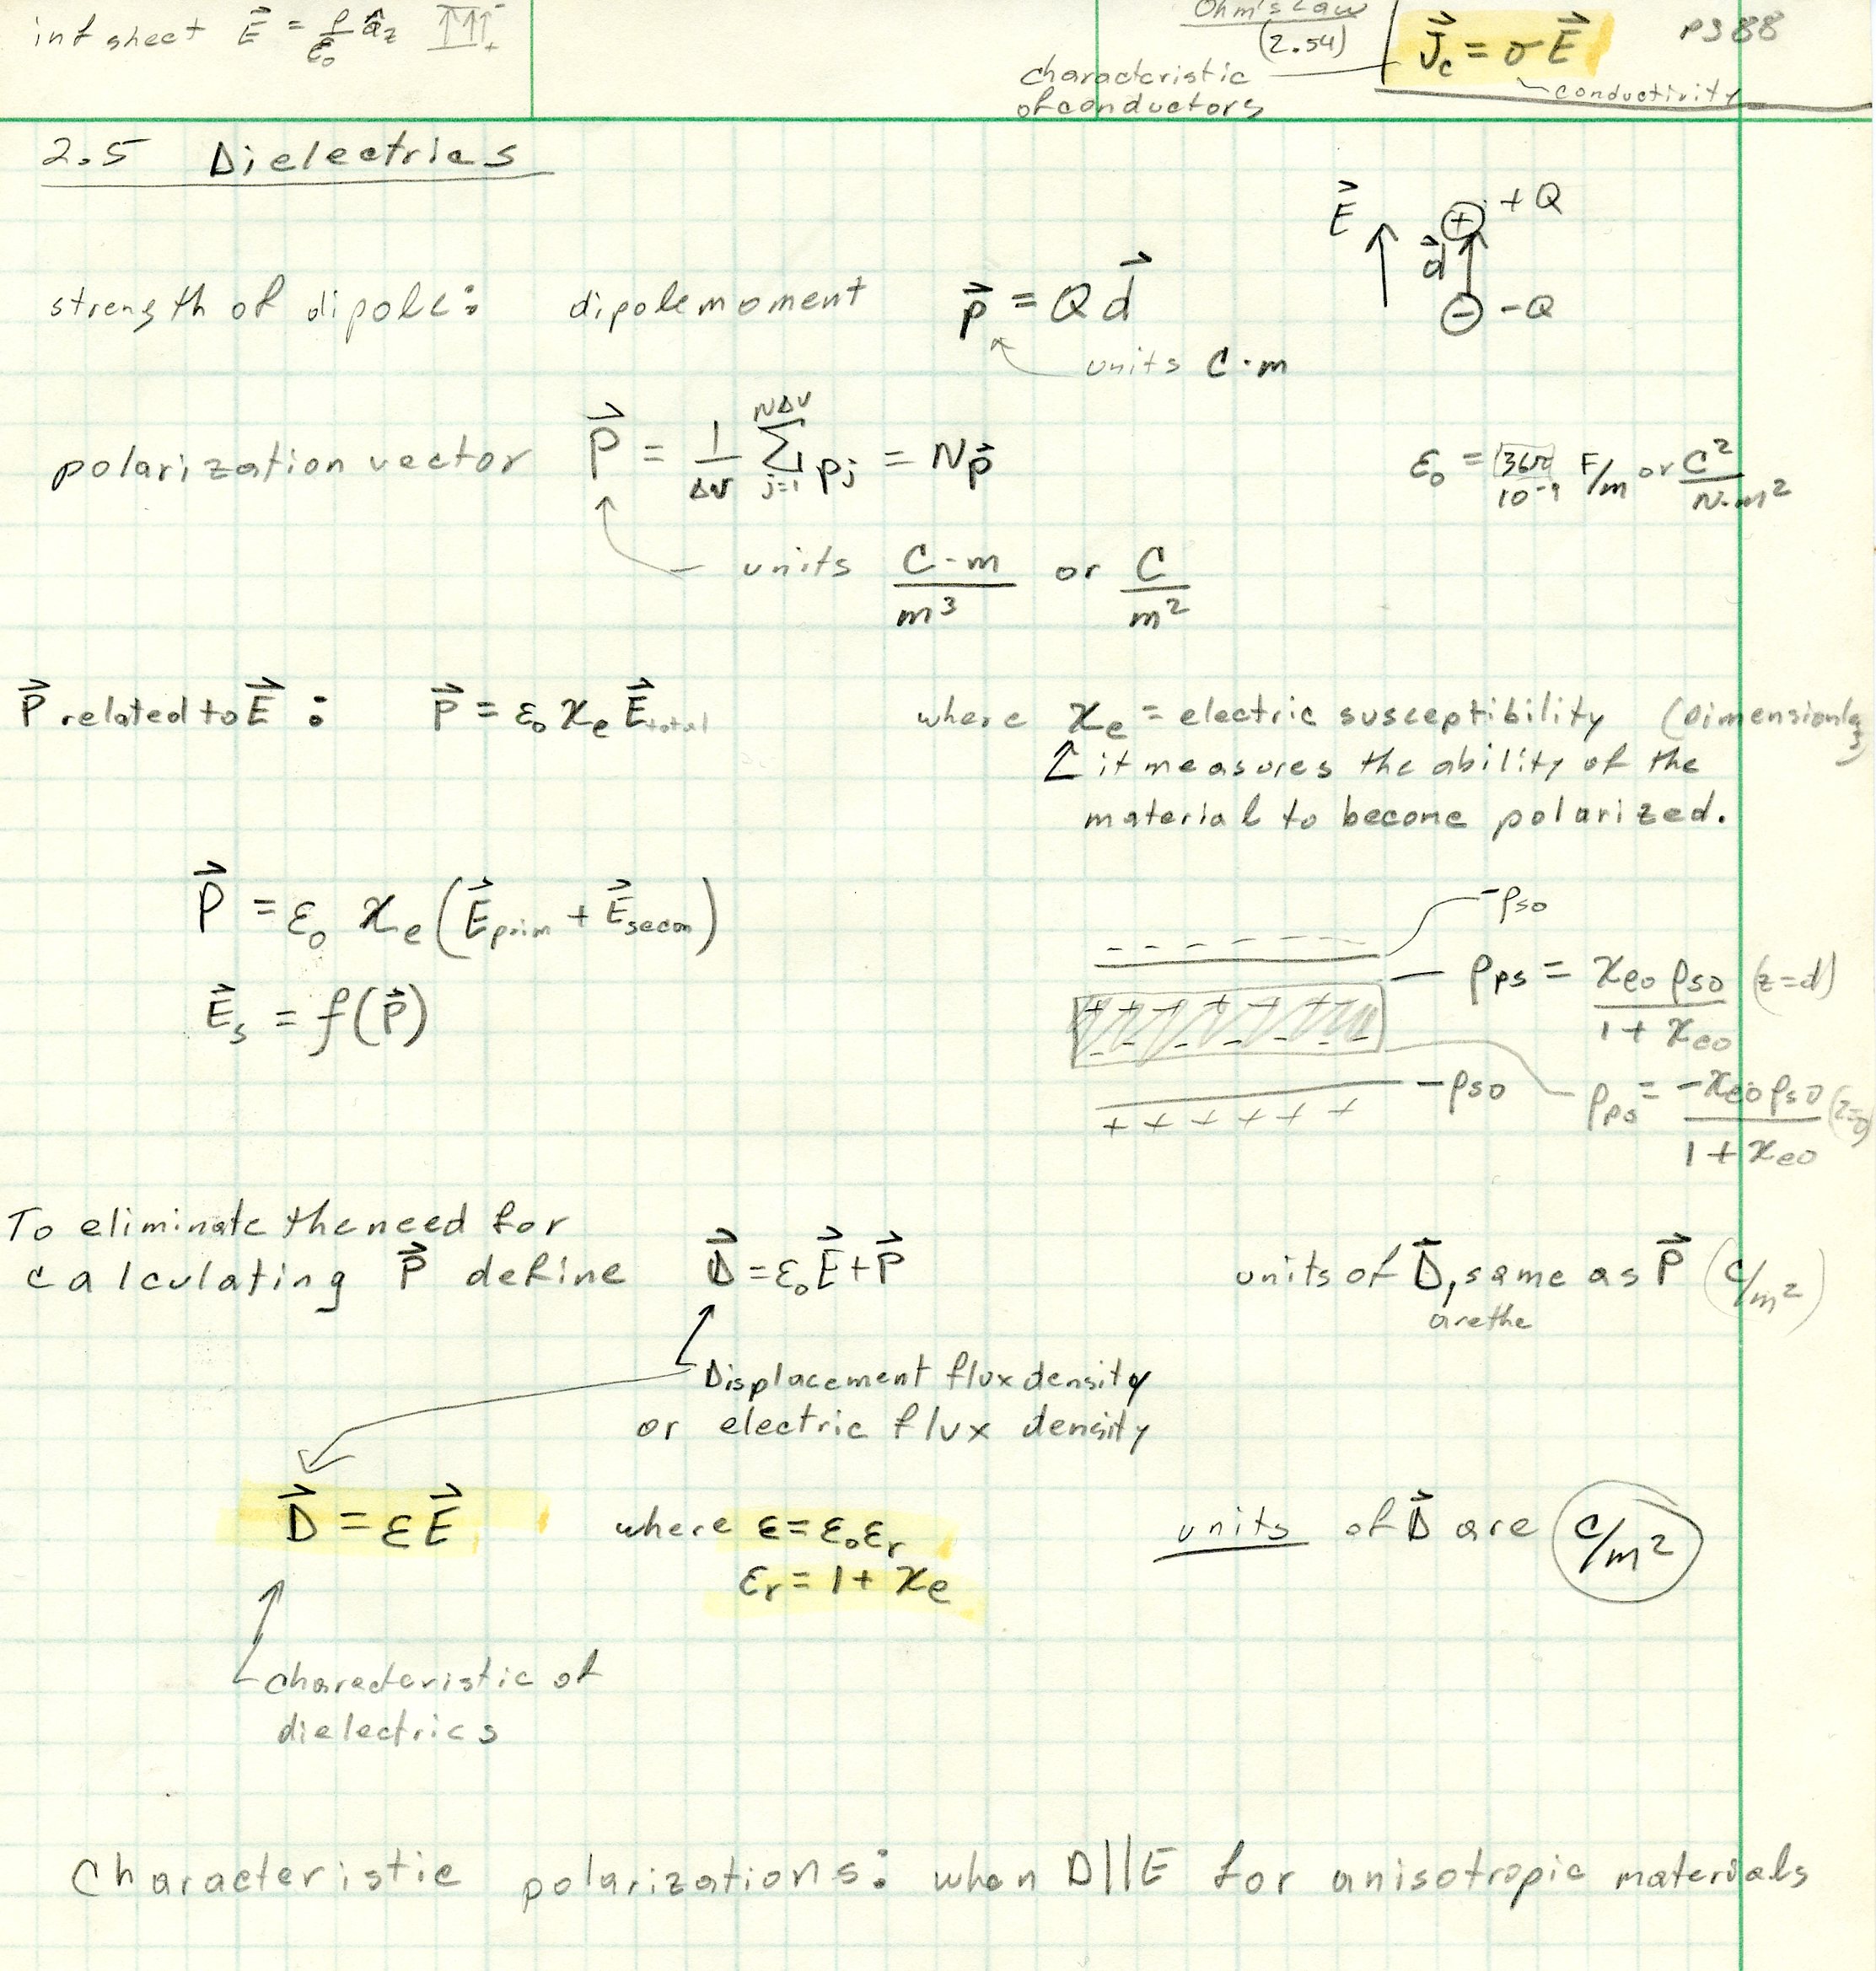 inf sheet E⃗ = ρ/ε₀ â_z - +
Ohm's Law
(2.54)
J⃗_c = σE⃗
pg 88
characteristic
of conductors
conductivity
2.5 Dielectrics
E⃗ d⃗ + +Q - -Q
strength of dipole: dipole moment p⃗ = Q d⃗
units C·m
polarization vector P⃗ = 1/Δv Σ_{j=1}^{NΔv} p_j = Np⃗
ε₀ = 36π/10⁻⁹ F/m or C²/N·m²
units C-m/m³ or C/m²
P⃗ related to E⃗ : P⃗ = ε₀ χ_e E⃗_total where χ_e = electric susceptibility (Dimensionless
it measures the ability of the
material to become polarized.
P⃗ = ε₀ χ_e (E⃗_prim + E⃗_secon)
E⃗_s = f(P⃗)
-ρ_so
- - - - - -
ρ_ps = χ_eo ρ_so / 1 + χ_eo (z=d)
+ + + + + +
- - - - - -
ρ_so
+ + + + + +
ρ_ps = -χ_eo ρ_so / 1 + χ_eo (z=0)
To eliminate the need for
calculating P⃗ define D⃗ = ε₀E⃗ + P⃗
units of D⃗, are the same as P⃗ (C/m²)
Displacement flux density
or electric flux density
D⃗ = εE⃗ where ε = ε₀ε_r
ε_r = 1 + χ_e
units of D⃗ are C/m²
characteristic of
dielectrics
Characteristic polarizations: when D||E for anisotropic materials